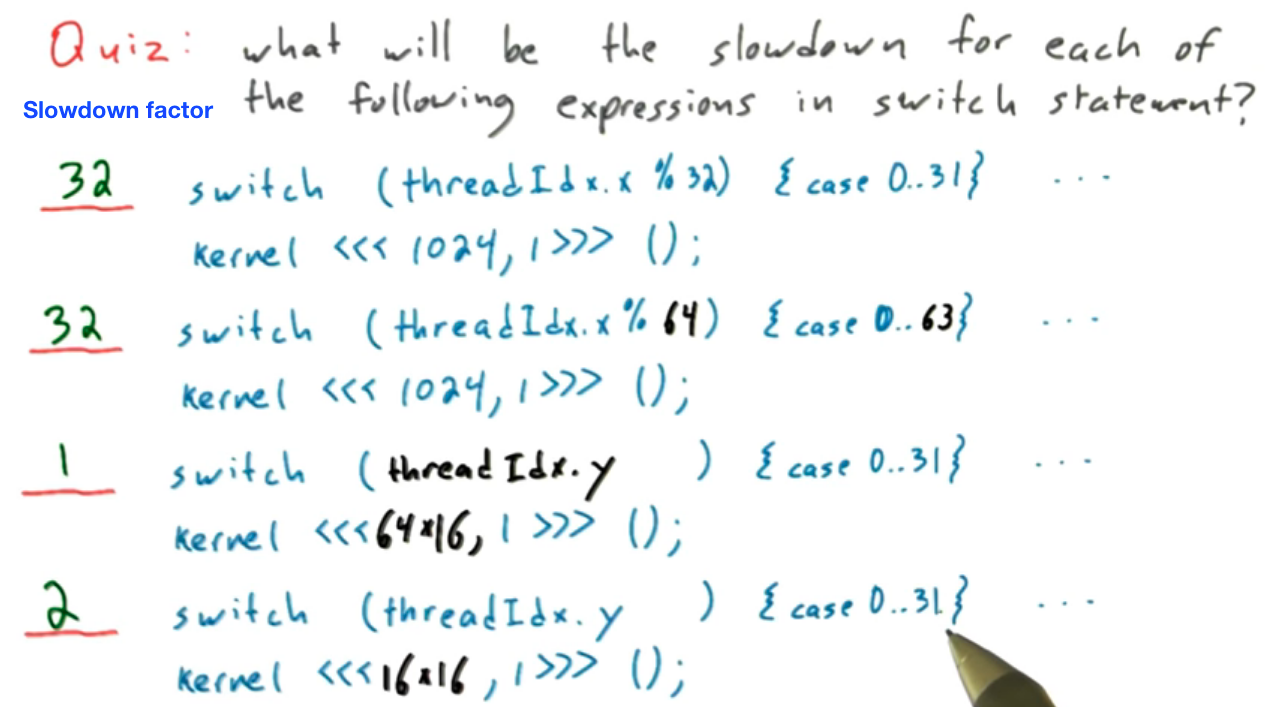 Quiz: what will be the slowdown for each of
Slowdown factor the following expressions in switch statement?
32 switch (threadIdx.x % 32) { case 0..31} ...
kernel <<< 1024, 1 >>> ();
32 switch (threadIdx.x % 64) { case 0..63} ...
kernel <<< 1024, 1 >>> ();
1 switch (threadIdx.y ) { case 0..31} ...
kernel <<<64*16, 1 >>> ();
2 switch (threadIdx.y ) { case 0..31} ...
kernel <<<16*16, 1 >>> ();